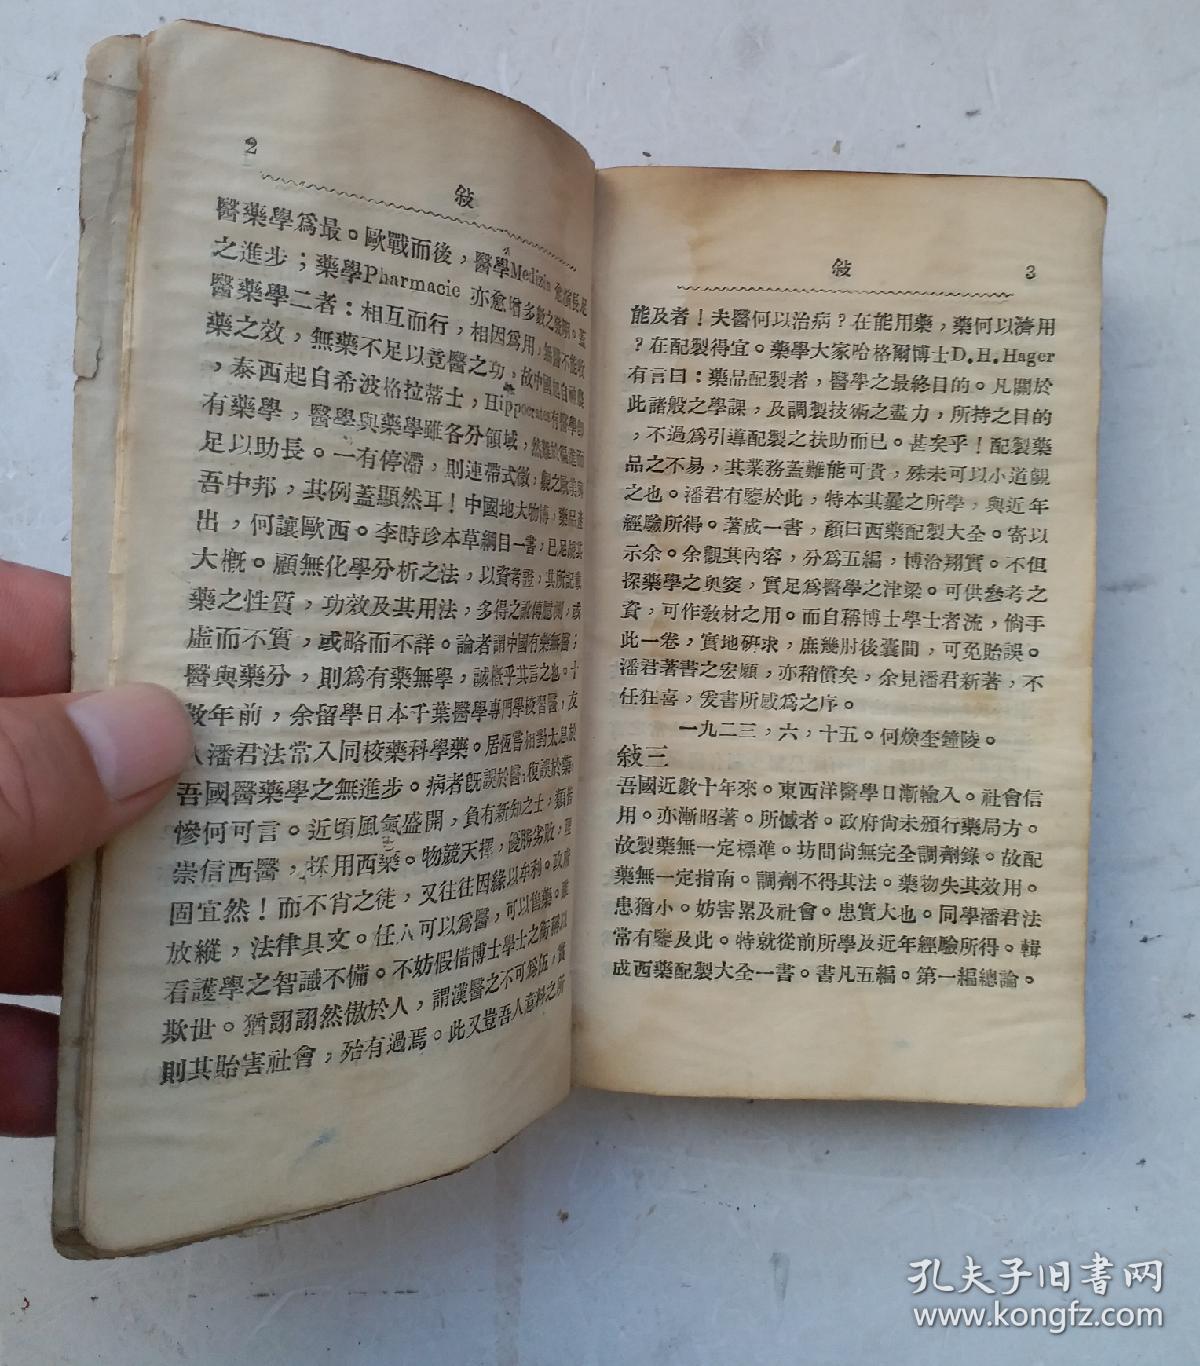 2
敍
醫藥學爲最。歐戰而後，醫學Medizin
之進步；藥學Pharmacie 亦愈增多數之發明。蓋
醫藥學二者：相互而行，相因爲用，無醫不能收
藥之效，無藥不足以竟醫之功，故中國起自神農
，泰西起自希波格拉蒂士，Hippocrates有醫學卽
有藥學，醫學與藥學雖各分領域，然
足以助長。一有停滯，則連帶式微，觀之歐美與
吾中邦，其例蓋顯然耳！中國地大物博，藥品產
出，何讓歐西。李時珍本草綱目一書，已足窺其
大槪。顧無化學分析之法，以資考證，其所記載
藥之性質，功效及其用法，多得之訛傳臆測，或
虛而不實，或略而不詳。論者謂中國有藥無醫；
醫與藥分，則爲有藥無學，誠槪乎其言之也。十
數年前，余留學日本千葉醫學專門學校習醫，友
人潘君法常入同校藥科學藥。居恆嘗相對太息於
吾國醫藥學之無進步。病者旣誤於醫；復誤於藥，
慘何可言。近頃風氣盛開，負有新知之士，類皆
崇信西醫，採用西藥。物競天擇，優勝劣敗，理
固宜然！而不肖之徒，又往往因緣以牟利。政府
放縱，法律具文。任人可以爲醫，可以售藥。雖
看護學之智識不備。不妨假借博士學士之銜稱以
欺世。猶詡詡然傲於人，謂漢醫之不可爲伍，實
則其貽害社會，殆有過焉。此又豈吾人意料之所
敍
3
能及者！夫醫何以治病？在能用藥，藥何以濟用
？在配製得宜。藥學大家哈格爾博士D.H.Hager
有言曰：藥品配製者，醫學之最終目的。凡關於
此諸般之學課，及調製技術之盡力，所持之目的
，不過爲引導配製之扶助而已。甚矣乎！配製藥
品之不易，其業務蓋難能可貴，殊未可以小道覷
之也。潘君有鑒於此，特本其曩之所學，與近年
經驗所得。著成一書，顏曰西藥配製大全。寄以
示余。余觀其內容，分爲五編，博洽翔實。不但
探藥學之奧窔，實足爲醫學之津梁。可供參考之
資，可作教材之用。而自稱博士學士者流，倘手
此一卷，實地硏求，庶幾肘後囊間，可免貽誤。
潘君著書之宏願，亦稍償矣，余見潘君新著，不
任狂喜，爰書所感爲之序。
一九二三，六，十五。何煥奎鐘陵。
敍三
吾國近數十年來。東西洋醫學日漸輸入。社會信
用。亦漸昭著。所憾者。政府尚未頒行藥局方。
故製藥無一定標準。坊間尚無完全調劑錄。故配
藥無一定指南。調劑不得其法。藥物失其效用。
患猶小。妨害累及社會。患實大也。同學潘君法
常有鑒及此。特就從前所學及近年經驗所得。輯
成西藥配製大全一書。書凡五編。第一編總論。
孔夫子旧书网
www.kongfz.com